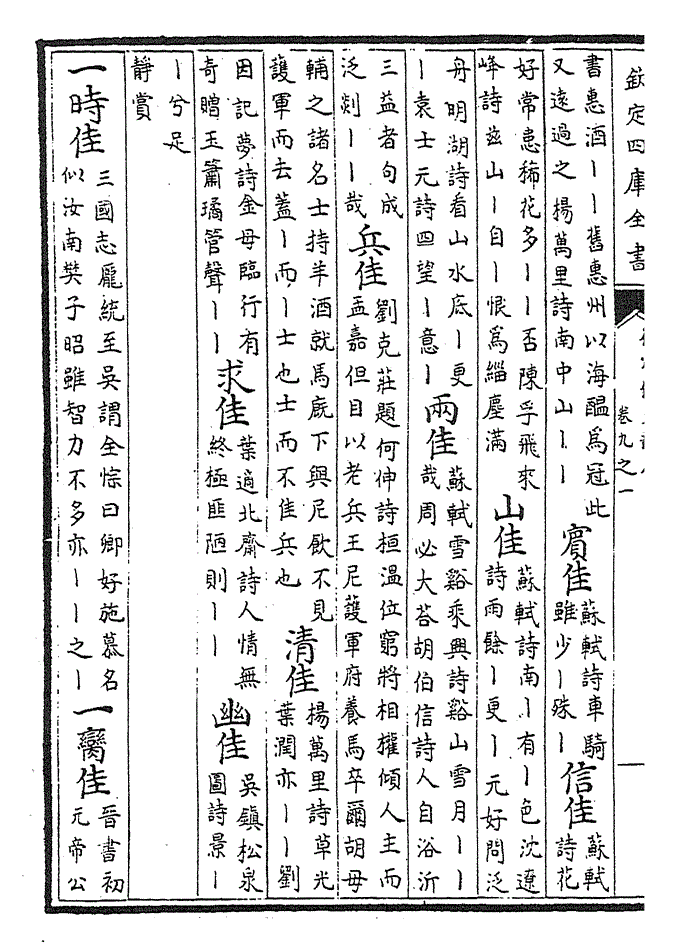 欽定四庫全書
卷九之一
書惠酒丨丨舊惠州以海醞爲冠此
又遠過之楊萬里詩南中山丨丨
賓佳
蘇軾詩車騎
雖少丨殊丨
信佳
蘇軾
詩花
好常患稀花多丨丨否陳孚飛來
峰詩兹山丨自丨恨爲緇塵滿
山佳
蘇軾詩南丨有丨色沈遼
詩雨餘丨更丨元好問泛
舟明湖詩看山水底丨更
丨袁士元詩四望丨意丨
兩佳
蘇軾雪谿乘興詩谿山雪月丨丨
哉周必大荅胡伯信詩人自浴沂
三益者句成
泛剡丨丨哉
兵佳
劉克莊題何仲詩桓温位窮將相權傾人主而
孟嘉但目以老兵王尼護軍府養馬卒爾胡母
輔之諸名士持羊酒就馬廐下與尼飲不見
護軍而去蓋丨而丨士也士而不隹兵也
清佳
楊萬里詩草光
葉潤亦丨丨劉
因記夢詩金母臨行有
奇贈玉簫璚管聲丨丨
求佳
葉適北齋詩人情無
終極匪陋則丨丨
幽佳
吳鎮松泉
圖詩景丨
丨兮足
靜賞
一時佳
三國志龎統至吳謂全悰曰卿好施慕名
似汝南樊子昭雖智力不多亦丨丨之丨
一臠佳
晉書初
元帝公